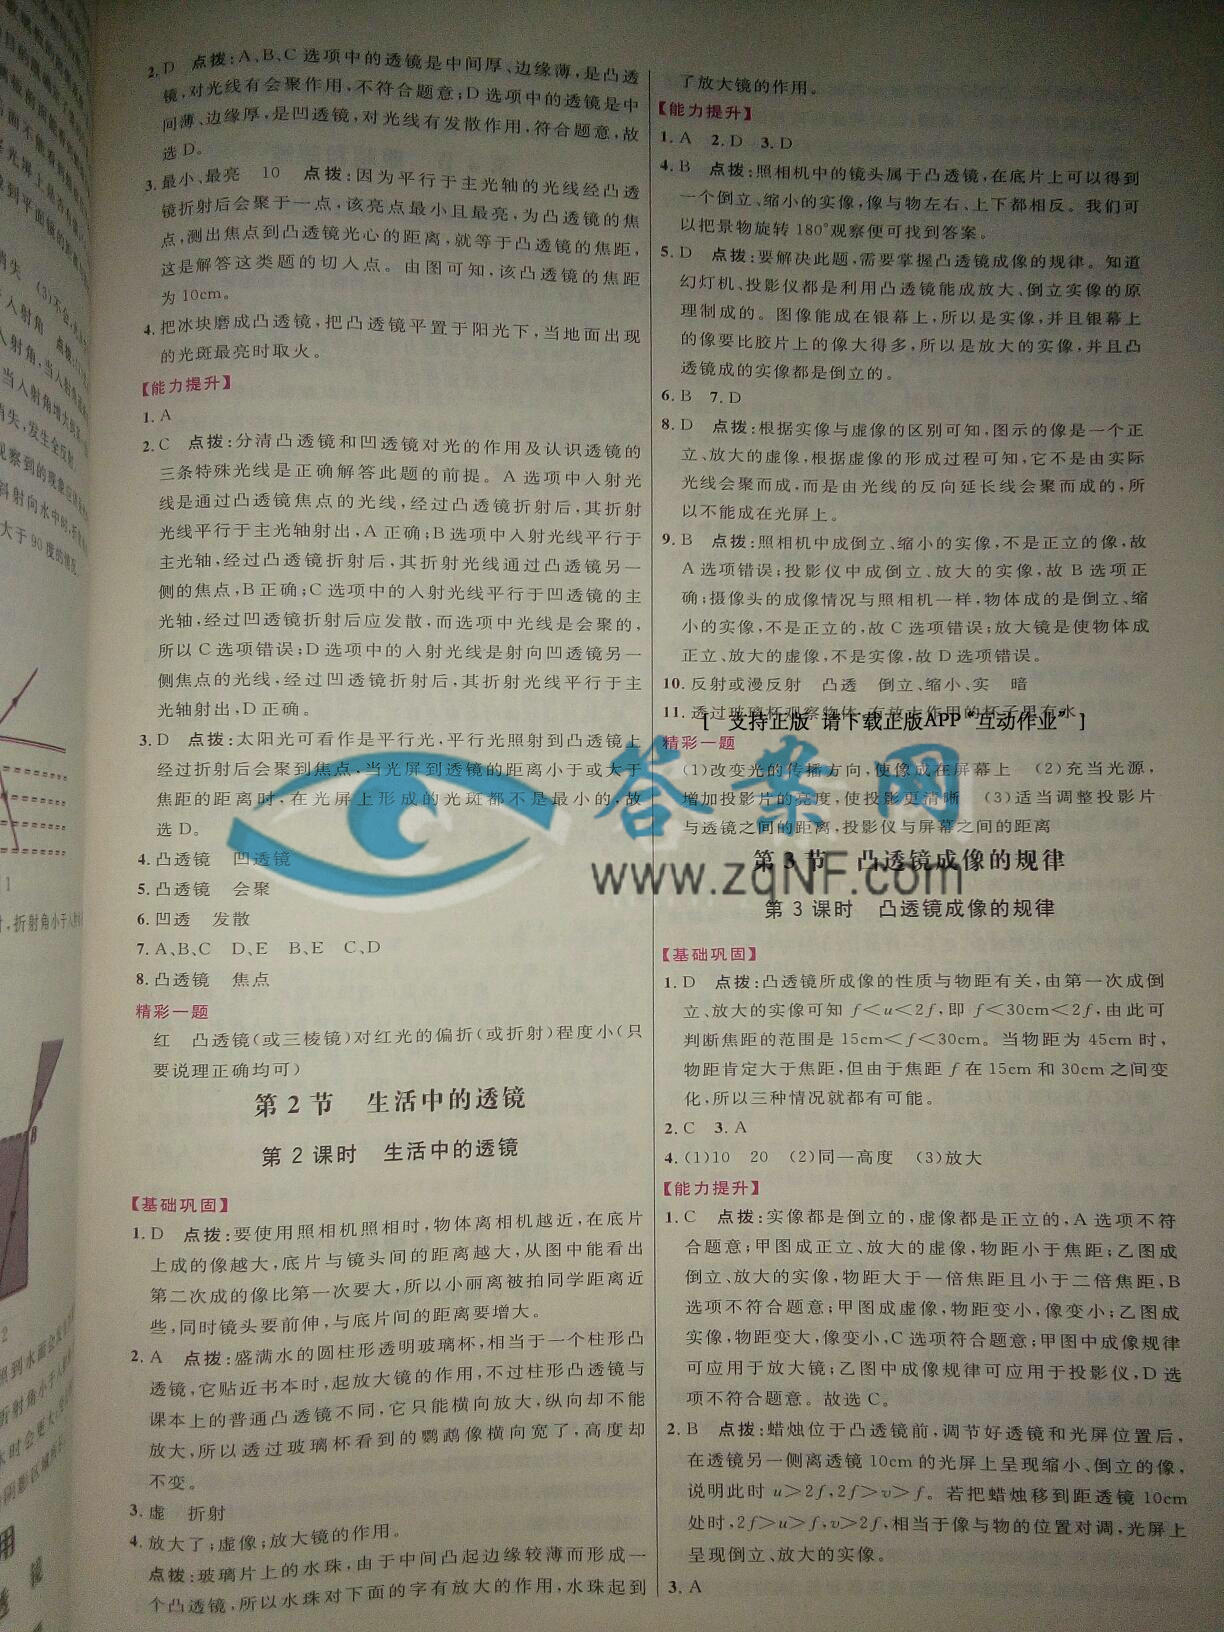 2. D 点拨:A、B、C 选项中的透镜是中间厚、边缘薄,是凸透
镜,对光线有会聚作用,不符合题意;D 选项中的透镜是中
间薄、边缘厚,是凹透镜,对光线有发散作用,符合题意,故
选 D。
3. 最小、最亮 10 点拨:因为平行于主光轴的光线经凸透
镜折射后会聚于一点,该亮点最小且最亮,为凸透镜的焦
点,测出焦点到凸透镜光心的距离,就等于凸透镜的焦距,
这是解答这类题的切入点。由图可知,该凸透镜的焦距
为 10cm。
4. 把冰块磨成凸透镜,把凸透镜平置于阳光下,当地面出现
的光斑最亮时取火。
【能力提升】
1. A
2. C 点拨:分清凸透镜和凹透镜对光的作用及认识透镜的
三条特殊光线是正确解答此题的前提。A 选项中入射光
线是通过凸透镜焦点的光线,经过凸透镜折射后,其折射
光线平行于主光轴射出,A 正确;B 选项中入射光线平行于
主光轴,经过凸透镜折射后,其折射光线通过凸透镜另一
侧的焦点,B 正确;C 选项中的入射光线平行于凹透镜的主
光轴,经过凹透镜折射后应发散,而选项中光线是会聚的,
所以 C 选项错误;D 选项中的入射光线是射向凹透镜另一
侧焦点的光线,经过凹透镜折射后,其折射光线平行于主
光轴射出,D 正确。
3. D 点拨:太阳光可看作是平行光,平行光照射到凸透镜上
经过折射后会聚到焦点,当光屏到透镜的距离小于或大于
焦距的距离时,在光屏上形成的光斑都不是最小的,故
选 D。
4. 凸透镜 凹透镜
5. 凸透镜 会聚
6. 凹透 发散
7. A、B、C D、E B、E C、D
8. 凸透镜 焦点
精彩一题
红 凸透镜(或三棱镜)对红光的偏折(或折射)程度小(只
要说理正确均可)
第 2 节 生活中的透镜
第 2 课时 生活中的透镜
【基础巩固】
1. D 点拨:要使用照相机照相时,物体离相机越近,在底片
上成的像越大,底片与镜头间的距离越大,从图中能看出
第二次成的像比第一次要大,所以小丽离被拍同学距离近
些,同时镜头要前伸,与底片间的距离要增大。
2. A 点拨:盛满水的圆柱形透明玻璃杯,相当于一个柱形凸
透镜,它贴近书本时,起放大镜的作用,不过柱形凸透镜与
课本上的普通凸透镜不同,它只能横向放大,纵向却不能
放大,所以透过玻璃杯看到的鹦鹉像横向宽了,高度却
不变。
3. 虚 折射
4. 放大了;虚像;放大镜的作用。
点拨:玻璃片上的水珠,由于中间凸起边缘较薄而形成一
个凸透镜,所以水珠对下面的字有放大的作用,水珠起到
了放大镜的作用。
【能力提升】
1. A 2. D 3. D
4. B 点拨:照相机中的镜头属于凸透镜,在底片上可以得到
一个倒立、缩小的实像,像与物左右、上下都相反。我们可
以把景物旋转 180°观察便可找到答案。
5. D 点拨:要解决此题,需要掌握凸透镜成像的规律。知道
幻灯机、投影仪都是利用凸透镜能成放大、倒立实像的原
理制成的。图像能成在银幕上,所以是实像,并且银幕上
的像要比胶片上的像大得多,所以是放大的实像,并且凸
透镜成的实像都是倒立的。
6. B 7. D
8. D 点拨:根据实像与虚像的区别可知,图示的像是一个正
立、放大的虚像,根据虚像的形成过程可知,它不是由实际
光线会聚而成,而是由光线的反向延长线会聚而成的,所
以不能成在光屏上。
9. B 点拨:照相机中成倒立、缩小的实像,不是正立的像,故
A 选项错误;投影仪中成倒立、放大的实像,故 B 选项正
确;摄像头的成像情况与照相机一样,物体成的是倒立、缩
小的实像,不是正立的,故 C 选项错误;放大镜是使物体成
正立、放大的虚像,不是实像,故 D 选项错误。
10. 反射或漫反射 凸透 倒立、缩小、实 暗
11. 透过玻璃杯观察物体,有放大作用的杯子里有水
[ 支持正版 请下载正版APP“互动作业” ]
精彩一题
(1)改变光的传播方向,使像成在屏幕上 (2)充当光源,
增加投影片的亮度,使投影更清晰 (3)适当调整投影片
与透镜之间的距离,投影仪与屏幕之间的距离
答案网
www.zqNF.com
第 3 节 凸透镜成像的规律
第 3 课时 凸透镜成像的规律
【基础巩固】
1. D 点拨:凸透镜所成像的性质与物距有关,由第一次成倒
立、放大的实像可知 f<u<2f,即 f<30cm<2f,由此可
判断焦距的范围是 15cm<f<30cm。当物距为 45cm 时,
物距肯定大于焦距,但由于焦距 f 在 15cm 和 30cm 之间变
化,所以三种情况就都有可能。
2. C 3. A
4. (1)10 20 (2)同一高度 (3)放大
【能力提升】
1. C 点拨:实像都是倒立的,虚像都是正立的,A 选项不符
合题意;甲图成正立、放大的虚像,物距小于焦距;乙图成
倒立、放大的实像,物距大于一倍焦距且小于二倍焦距,B
选项不符合题意;甲图成虚像,物距变小,像变小;乙图成
实像,物距变大,像变小,C 选项符合题意;甲图中成像规律
可应用于放大镜;乙图中成像规律可应用于投影仪,D 选
项不符合题意。故选 C。
2. B 点拨:蜡烛位于凸透镜前,调节好透镜和光屏位置后,
在透镜另一侧离透镜 10cm 的光屏上呈现缩小、倒立的像,
说明此时 u>2f,2f>v>f。若把蜡烛移到距透镜 10cm
处时,2f>u>f,v>2f,相当于像与物的位置对调,光屏上
呈现倒立、放大的实像。
3. A